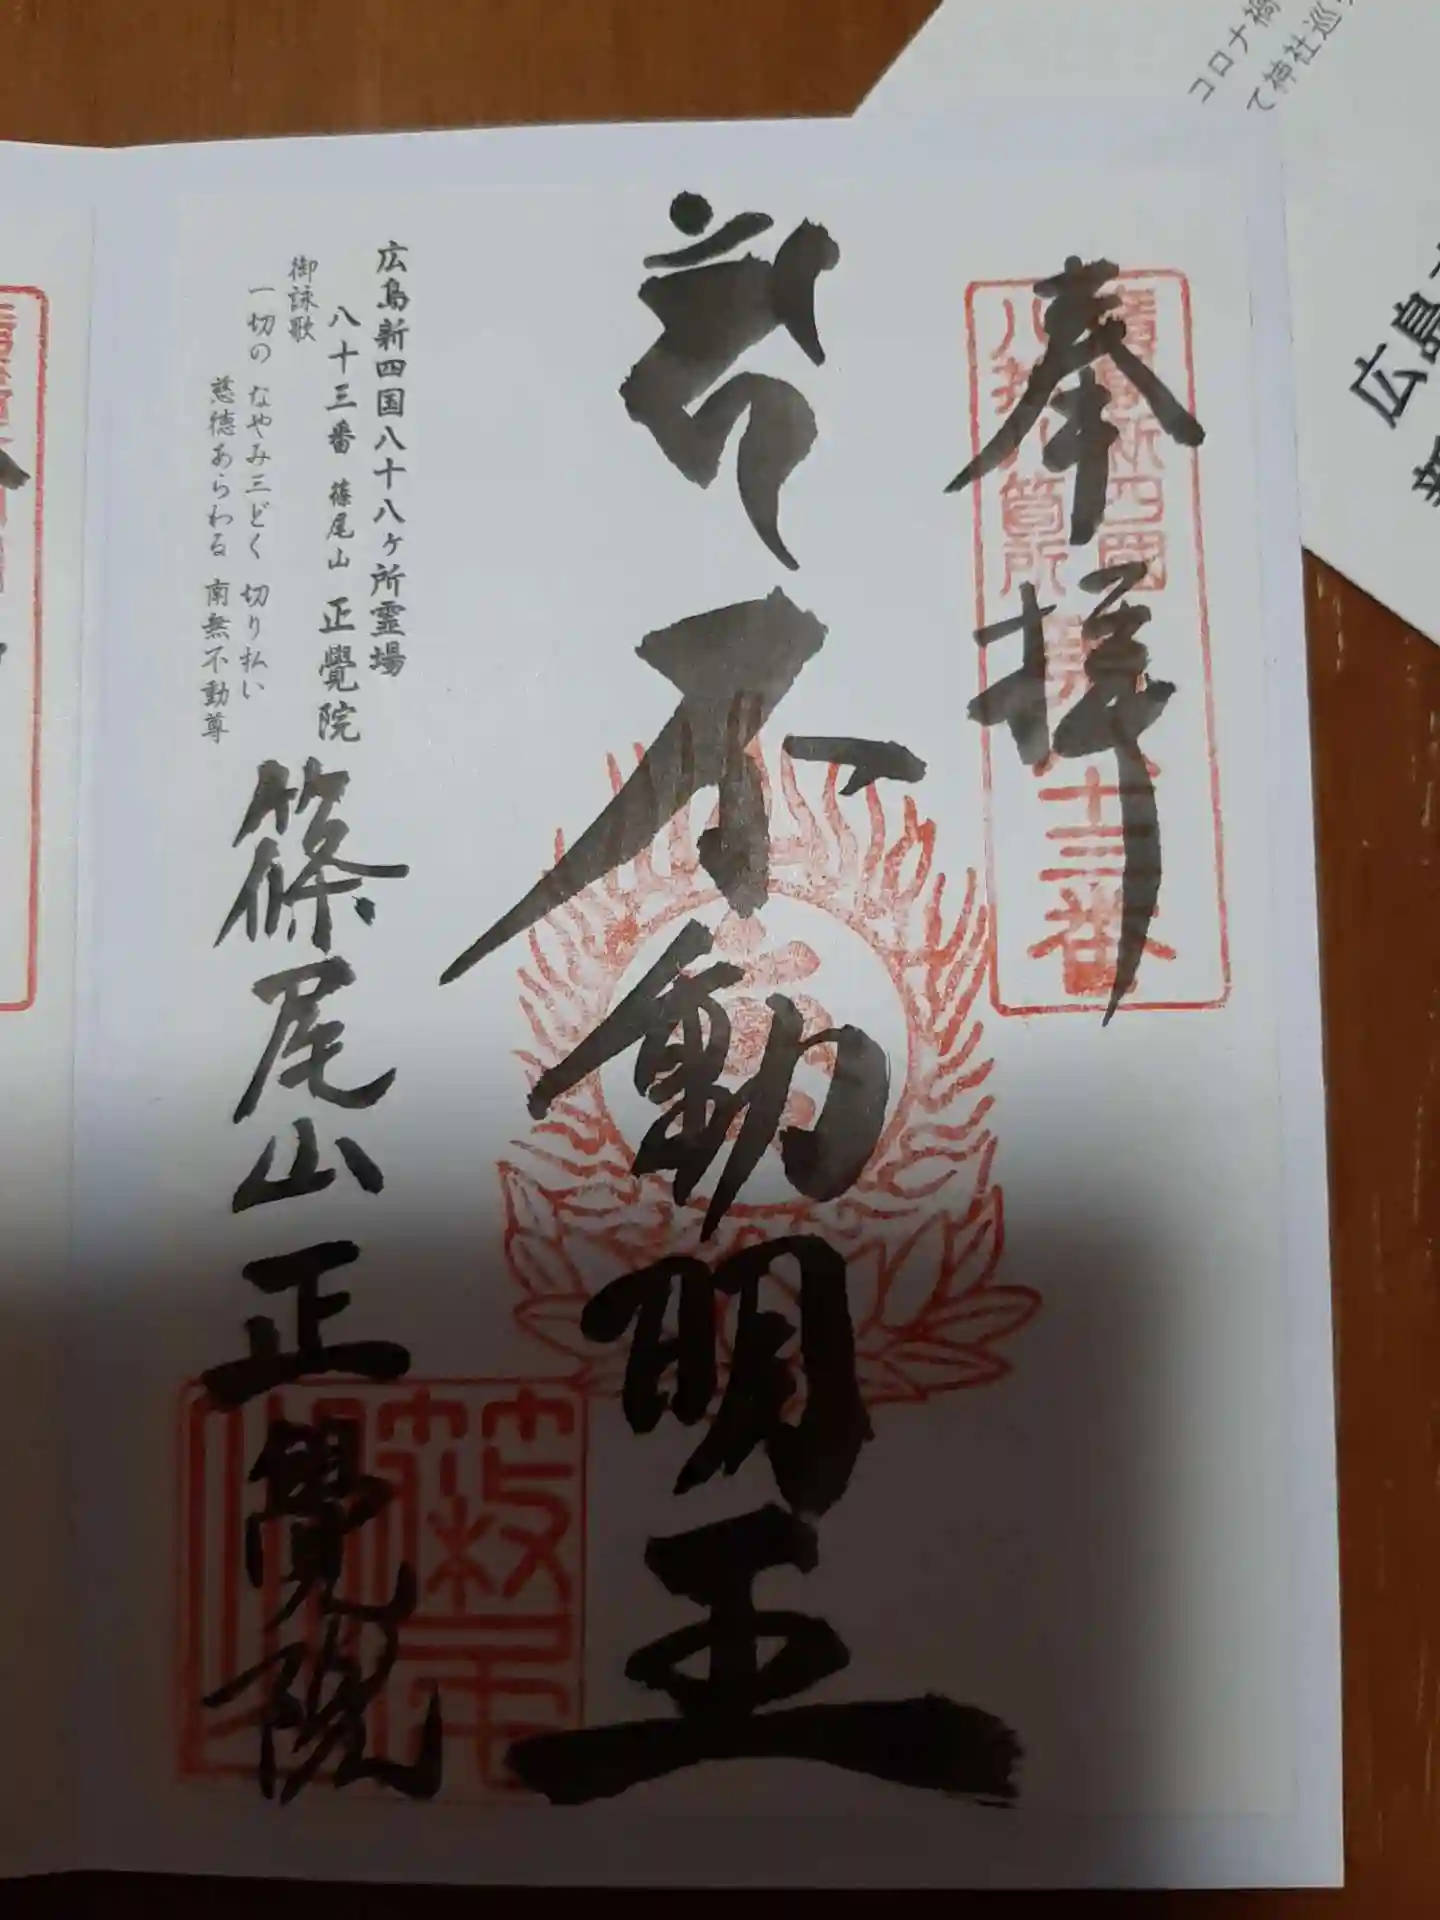 コロナ禍
て神社巡
広島
奉拝
八拾八箇所
新四國
十三番
不動明王
広島新四国八十八ヶ所霊場
八十三番 篠尾山 正覺院
御詠歌
一切の なやみ三どく 切り払い
慈徳あらわる 南無不動尊
篠尾山 正覺院